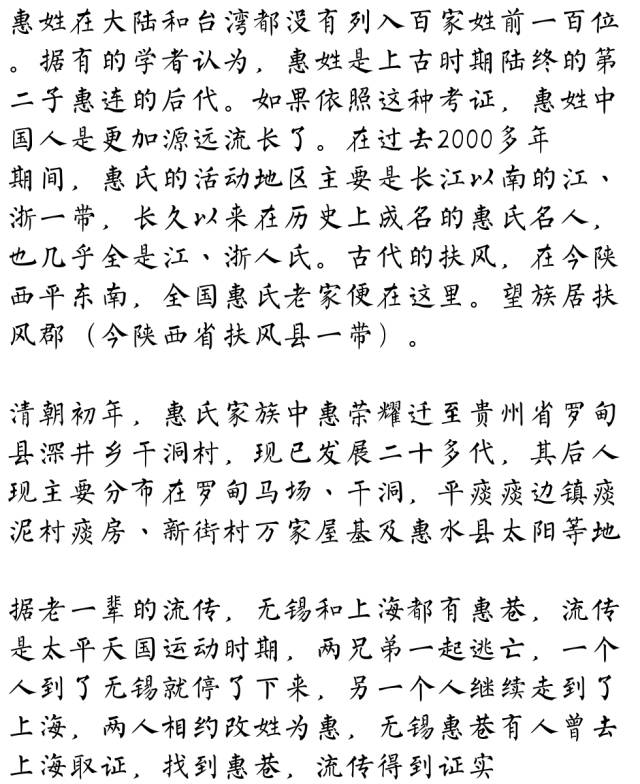 惠姓在大陆和台湾都没有列入百家姓前一百位
。据有的学者认为，惠姓是上古时期陆终的第
二子惠连的后代。如果依照这种考证，惠姓中
国人是更加源远流长了。在过去2000多年
期间，惠氏的活动地区主要是长江以南的江、
浙一带，长久以来在历史上成名的惠氏名人，
也几乎全是江、浙人氏。古代的扶风，在今陕
西平东南，全国惠氏老家便在这里。望族居扶
风郡（今陕西省扶风县一带）。
清朝初年，惠氏家族中惠荣耀迁至贵州省罗甸
县深井乡干洞村，现已发展二十多代，其后人
现主要分布在罗甸马场、干洞，平痰痰边镇痰
泥村痰房、新街村万家屋基及惠水县太阳等地
据老一辈的流传，无锡和上海都有惠巷，流传
是太平天国运动时期，两兄弟一起逃亡，一个
人到了无锡就停了下来，另一个人继续走到了
上海，两人相约改姓为惠，无锡惠巷有人曾去
上海取证，找到惠巷，流传得到证实